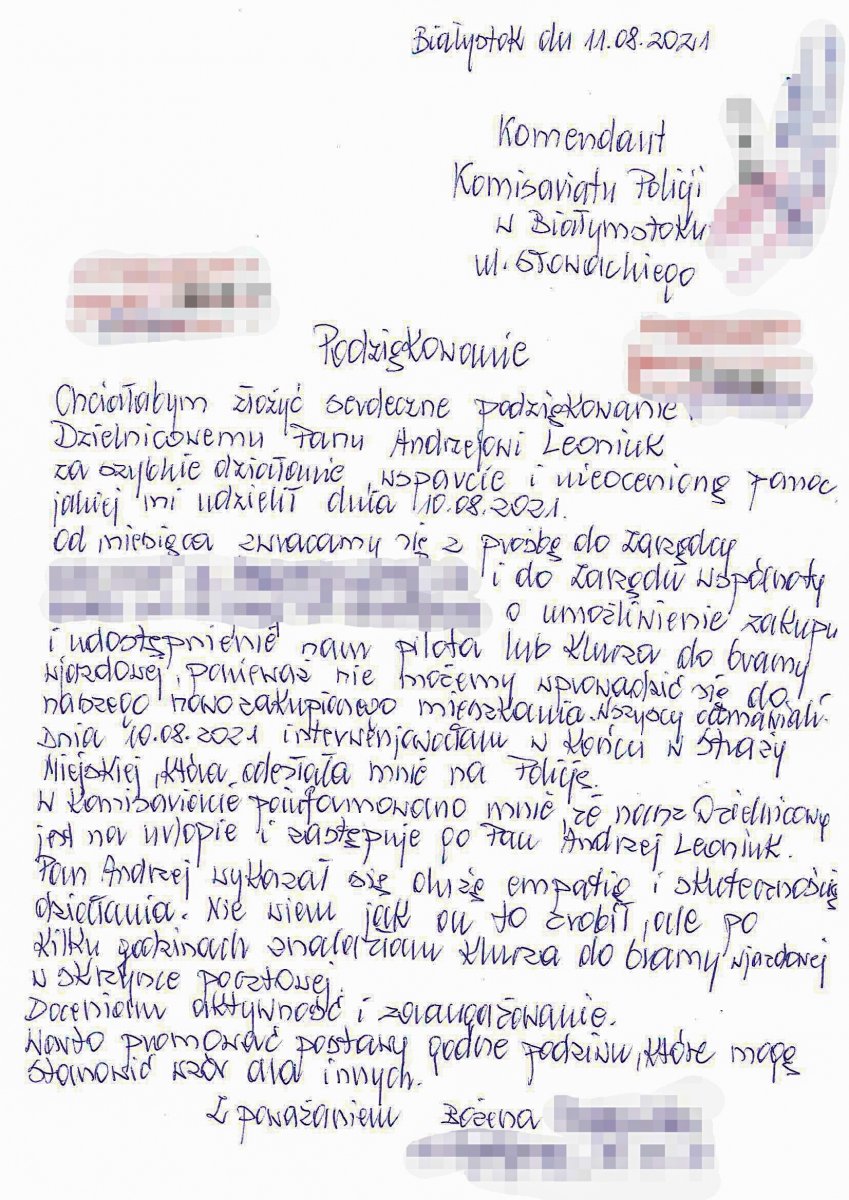 Białystok dn 11.08.2021
Komendant
Komisariatu Policji
w Białymstoku
ul. Słowackiego
Podziękowanie
Chciałabym złożyć serdeczne podziękowanie
Dzielnicowemu Panu Andrzejowi Leoniuk
za szybkie działanie, wsparcie i nieocenioną pomoc,
jakiej mi udzielił dnia 10.08.2021.
Od miesiąca zwracamy się z prośbą do zarządcy
i do Zarządu wspólnoty
o umożliwienie zakupu
i udostępnienie nam pilota lub klucza do bramy
wjazdowej, ponieważ nie możemy wprowadzić się do
naszego nowo zakupionego mieszkania. Wszyscy odmawiali.
Dnia 10.08.2021 interweniowałam w końcu w Straży
Miejskiej, która odesłała mnie na Policję.
W Komisariacie poinformowano mnie, że nasz Dzielnicowy
jest na urlopie i zastępuje go Pan Andrzej Leoniuk.
Pan Andrzej wykazał się dużą empatią i skutecznością
działania. Nie wiem jak on to zrobił, ale po
kilku godzinach znalazłam klucza do bramy wjazdowej
w skrzynce pocztowej.
Doceniam aktywność i zaangażowanie.
Warto promować postawy godne podziwu, które mogą
stanowić wzór dla innych.
Z poważaniem Bożena